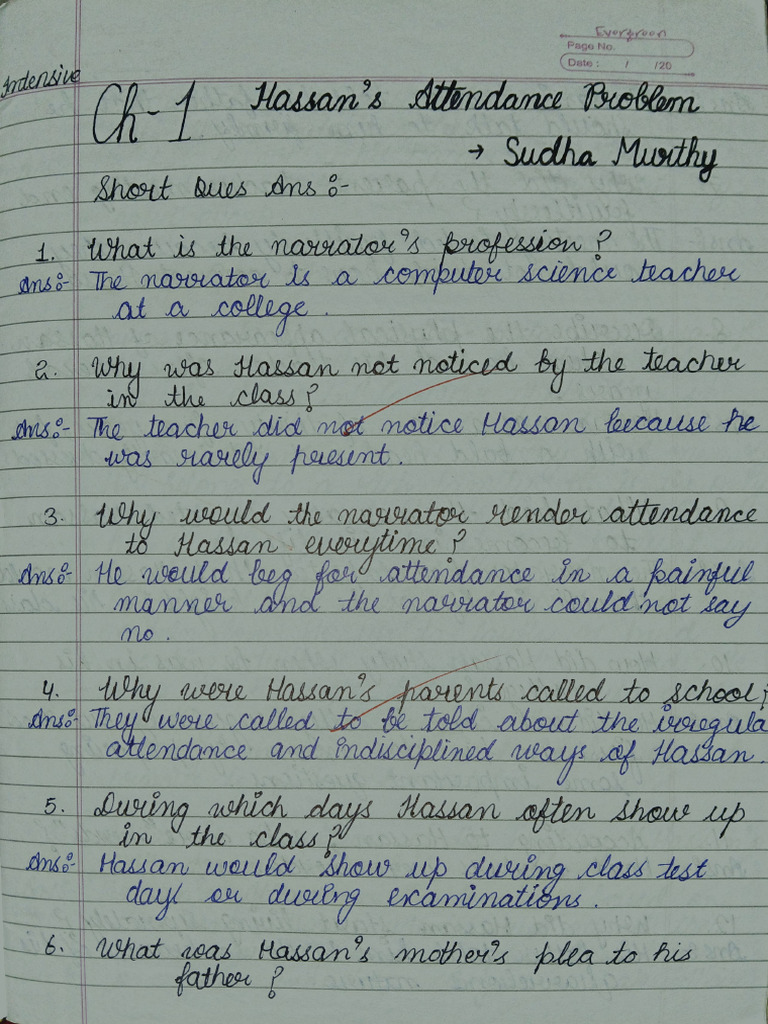 Evergreen
Page No.
Date : / /20
Intensive
Ch-1 Hassan's Attendance Problem
→ Sudha Murthy
Short Ques Ans :-
1. What is the narrator's profession?
Ans:- The narrator is a computer science teacher
at a college.
2. Why was Hassan not noticed by the teacher
in the class?
Ans:- The teacher did not notice Hassan because he
was rarely present.
3. Why would the narrator render attendance
to Hassan everytime?
Ans:- He would beg for attendance in a painful
manner and the narrator could not say
no.
4. Why were Hassan's parents called to school?
Ans:- They were called to be told about the irregula
attendance and indisciplined ways of Hassan.
5. During which days Hassan often show up
in the class?
Ans:- Hassan would show up during class test
days or during examinations.
6. What was Hassan's mother's plea to his
father?